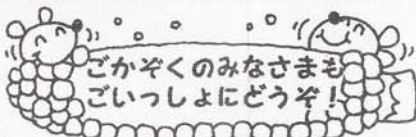 ごかぞくのみなさまも
ごいっしょにどうぞ!